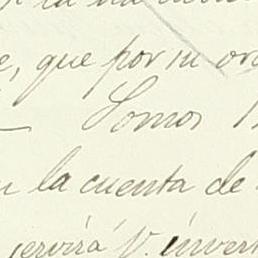 que por su
Somos
la cuenta de
servirá V. invert